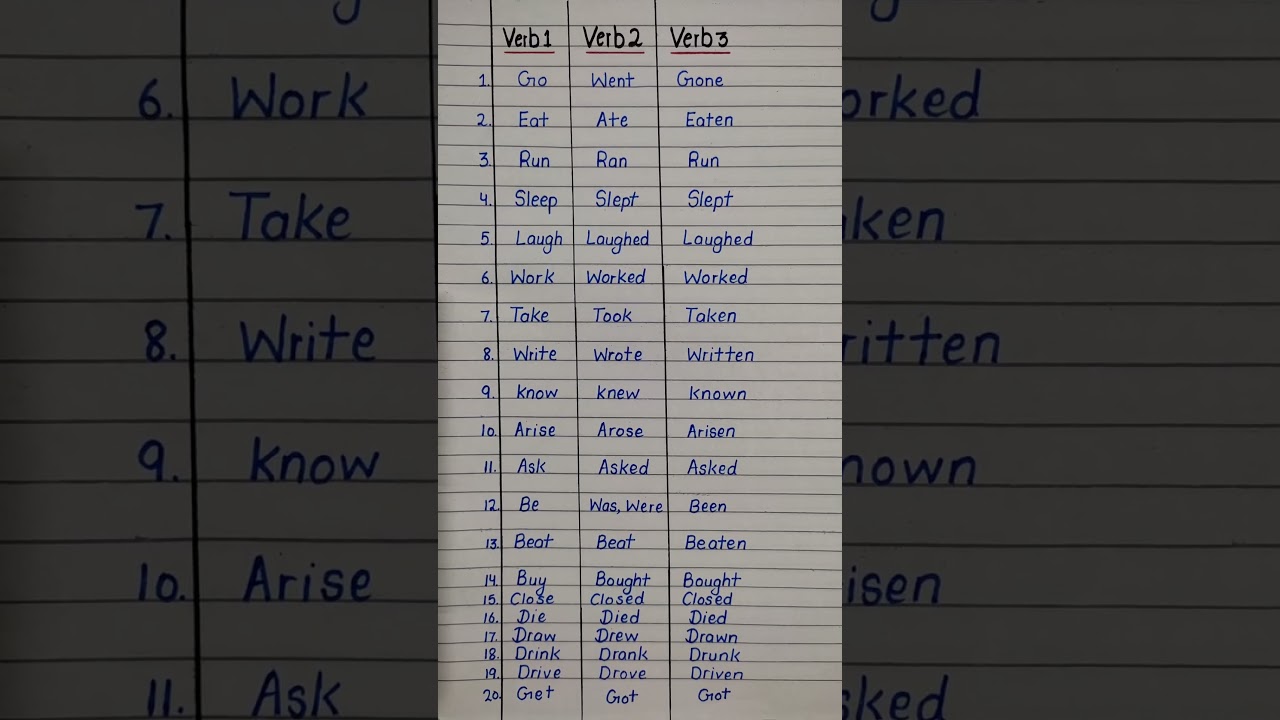 Verb 1 Verb 2 Verb 3
1. Go Went Gone
2. Eat Ate Eaten
3. Run Ran Run
4. Sleep Slept Slept
5. Laugh Laughed Laughed
6. Work Worked Worked
7. Take Took Taken
8. Write Wrote Written
9. know knew known
10. Arise Arose Arisen
11. Ask Asked Asked
12. Be Was, Were Been
13. Beat Beat Beaten
14. Buy Bought Bought
15. Close Closed Closed
16. Die Died Died
17. Draw Drew Drawn
18. Drink Drank Drunk
19. Drive Drove Driven
20. Get Got Got
6. Work orked
7. Take ken
8. Write ritten
9. know nown
10. Arise isen
11. Ask sked